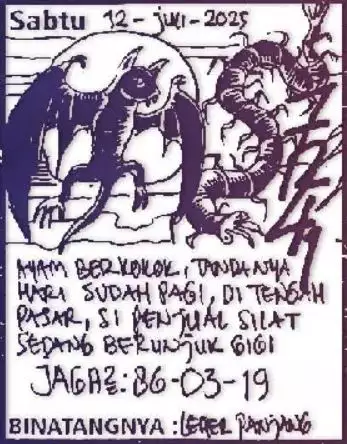 Sabtu 12-juli-2025
AYAM BERKOKOK, TANDANYA
HARI SUDAH PAGI, DI TENGAH
PASAR, SI PENJUAL SILAT
SEDANG BERUNJUK GIGI
JAGA2: 86-03-19
BINATANGNYA : LEHER PANJANG